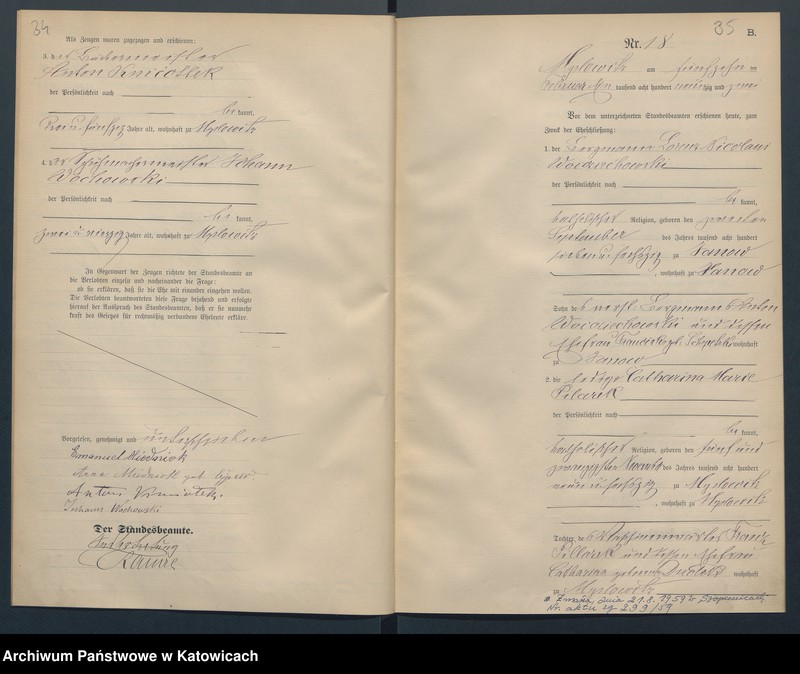 34
Als Zeugen waren zugezogen und erschienen:
3. der
Anton
der Persönlichkeit nach
bekannt,
Jahre alt, wohnhaft zu Myslowitz
4. der Schuhmachermeister Johann
Wochowski
der Persönlichkeit nach
bekannt,
zweiundvierzig Jahre alt, wohnhaft zu Myslowitz
In Gegenwart der Zeugen richtete der Standesbeamte an
die Verlobten einzeln und nacheinander die Frage:
ob sie erklären, daß sie die Ehe mit einander eingehen wollen.
Die Verlobten beantworteten diese Frage bejahend und erfolgte
hierauf der Ausspruch des Standesbeamten, daß er sie nunmehr
kraft des Gesetzes für rechtmäßig verbundene Eheleute erkläre.
Vorgelesen, genehmigt und unterschrieben
Emanuel
Anna geb.
Anton
Johann Wochowski
Der Standesbeamte.
In Vertretung
35
B.
Nr. 18
Myslowitz am fünfzehn ten
Februar tausend acht hundert neunzig und zwei
Vor dem unterzeichneten Standesbeamten erschienen heute, zum
Zweck der Eheschließung:
1. der Bergmann Lorenz Nicolaus
Woiciechowski
der Persönlichkeit nach
bekannt,
katholischer Religion, geboren den zweiten
September des Jahres tausend acht hundert
siebenundsechszig zu Janow
, wohnhaft zu Janow
Sohn des verst. Bergmanns Anton
Woiciechowski und dessen
Ehefrau wohnhaft
zu Janow
2. die ledige Catharina Marie
Pilarek
der Persönlichkeit nach
bekannt,
katholischer Religion, geboren den fünf und
zwanzigsten des Jahres tausend acht hundert
neunundsechszig zu Myslowitz
, wohnhaft zu Myslowitz
Tochter des Franz
Pillarek und dessen Ehefrau
Catharina geborene wohnhaft
zu Myslowitz
Zmarła dnia 21.8.1959 w Szopienicach
Nr. aktu zg 299/59
Archiwum Państwowe w Katowicach